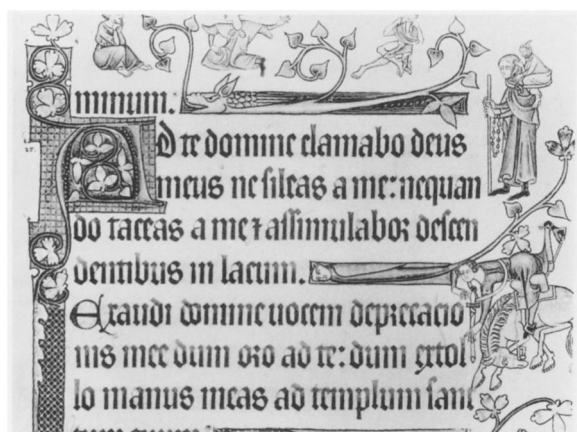 minum.
Ad te domine clamabo deus
meus ne sileas a me: nequan
do taceas a me ⁊ assimulaboꝛ descen
dentibus in lacum.
Exaudi domine uocem depꝛecacio
nis mee dum oꝛo ad te: dum extol
lo manus meas ad templum sanc